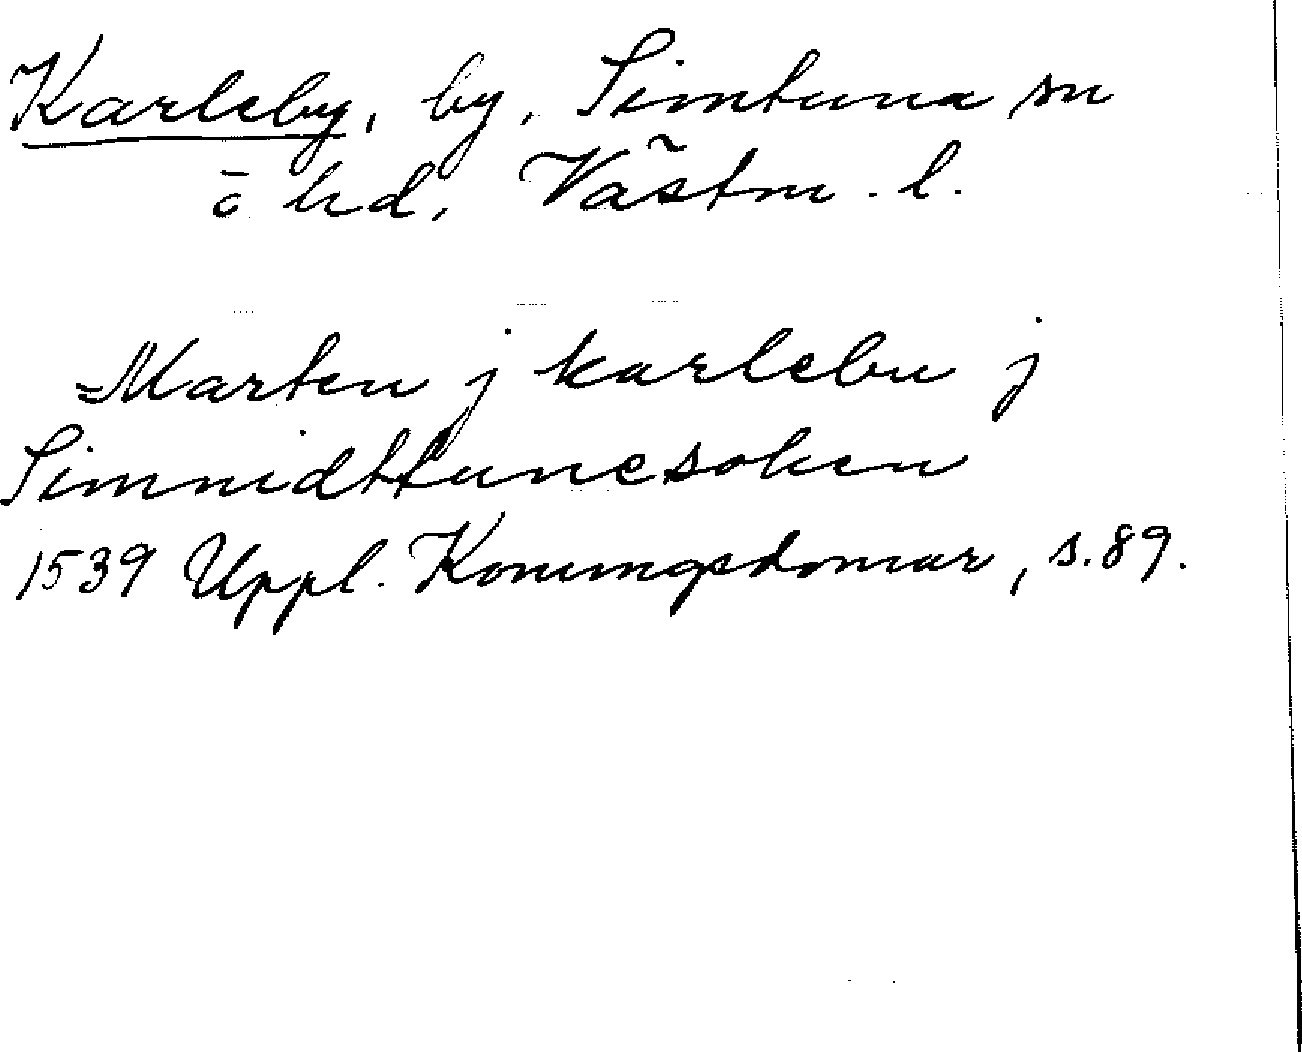 Karleby, by, Simtuna sn
o hd, Västm. l.
Marten j karlebu j
Simnidttunesoken
1539 Uppl. Konungsdomar, s. 89.